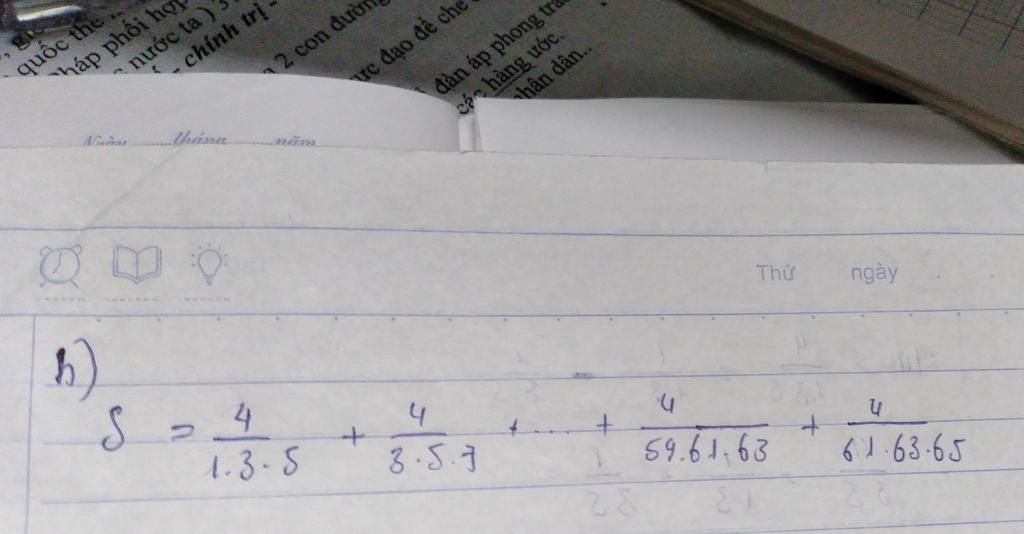 quốc thế
Pháp phối hợp
nước ta ) 3
chính trị -
2 con đường
đạo để che
đàn áp phong trào
các hàng ước.
nhân dân..
Ngày ......tháng ........năm
Thứ ngày . .
b)
S = 4/1.3.5 + 4/3.5.7 + .... + 4/59.61.63 + 4/61.63.65